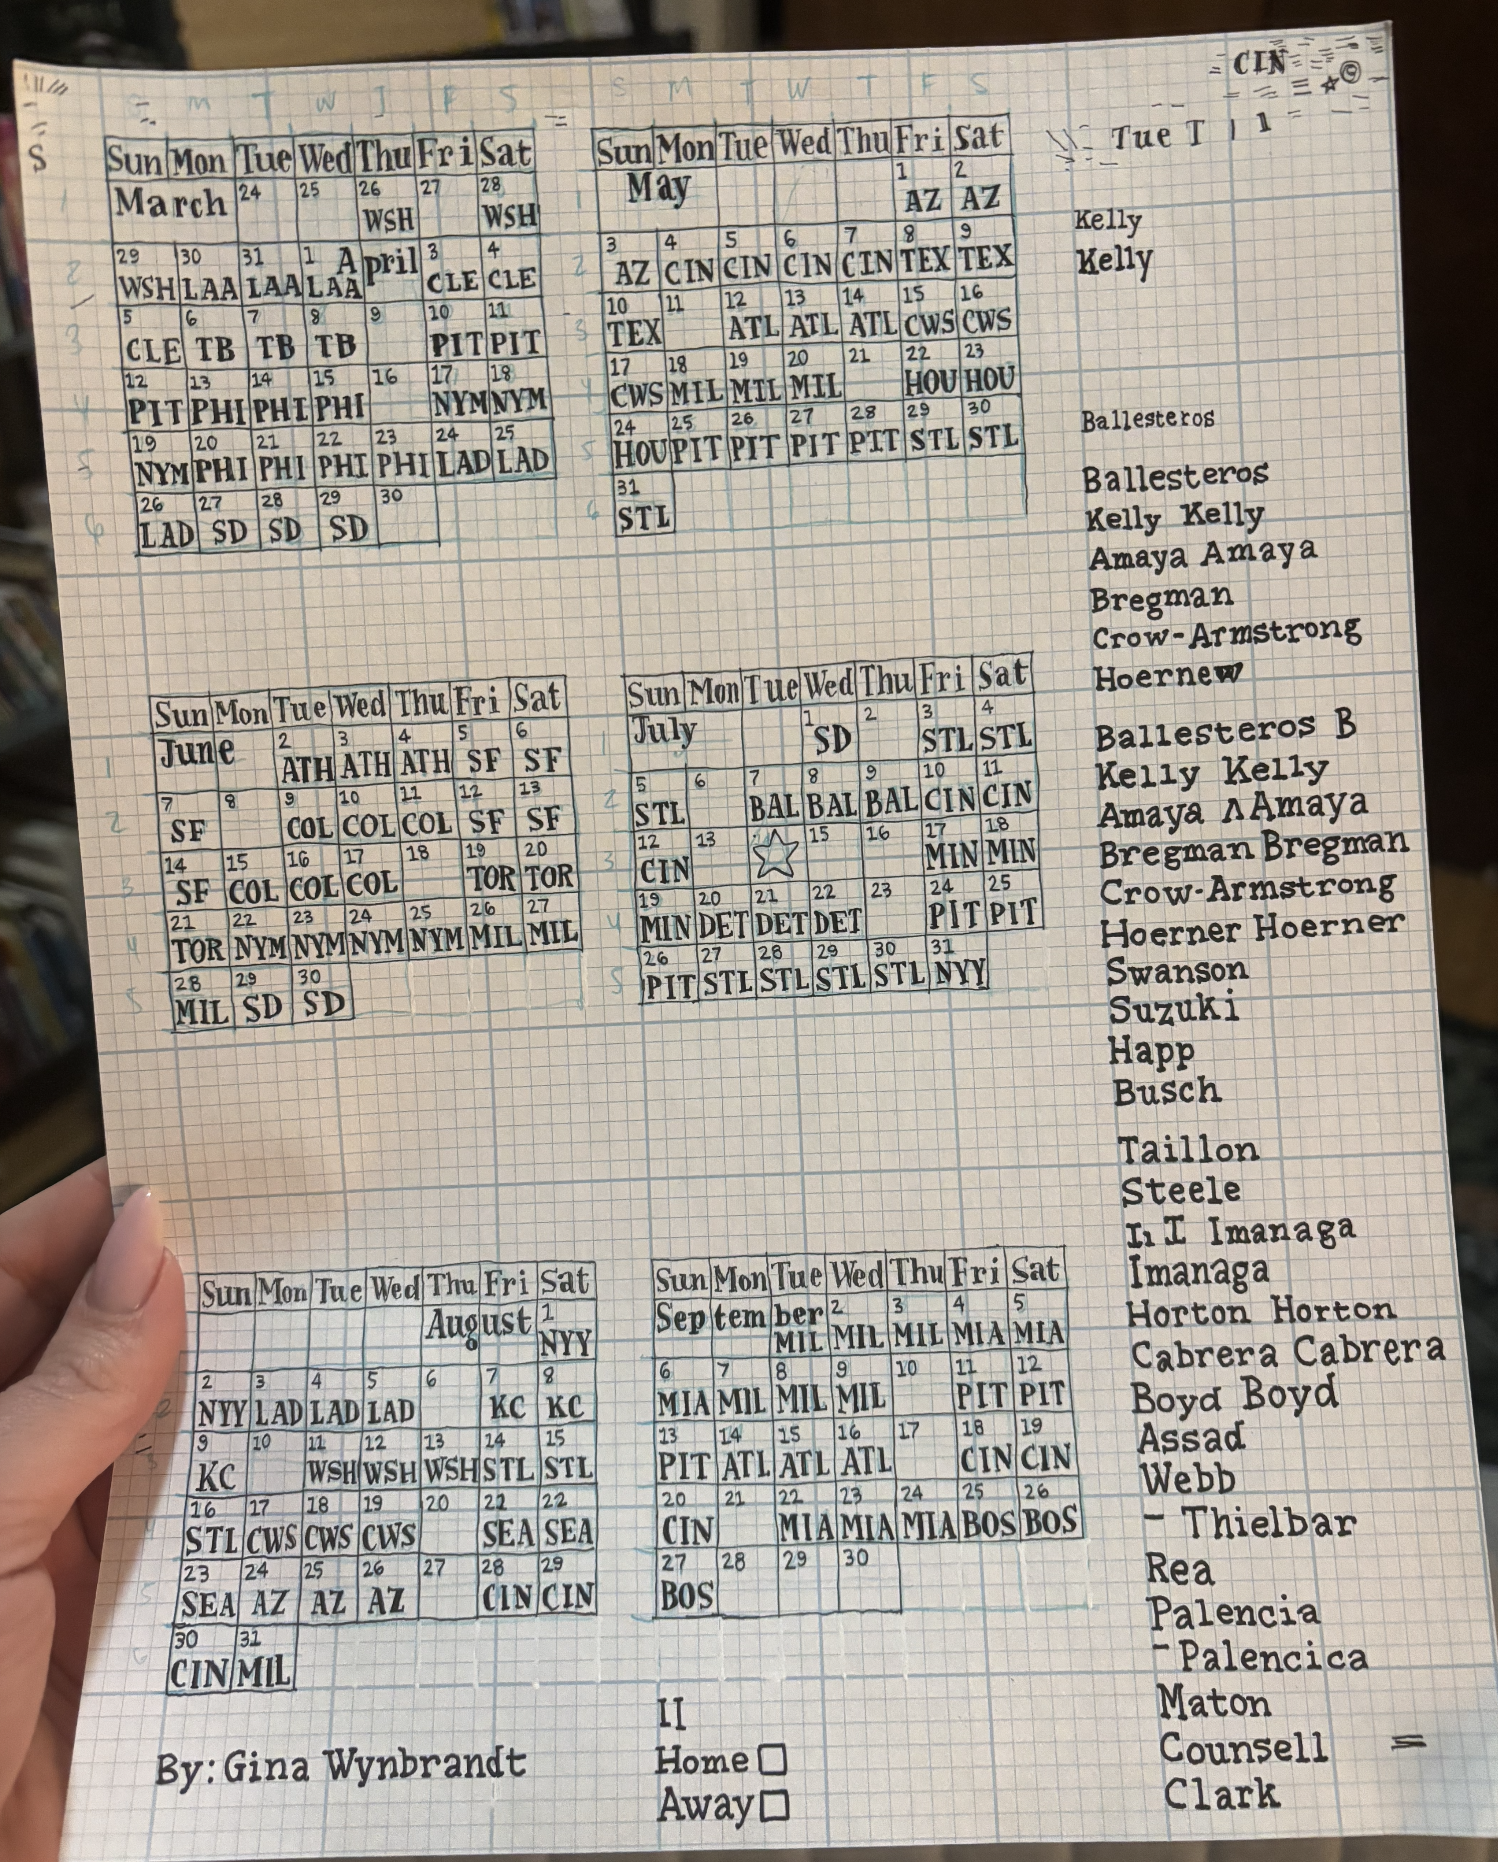 CIN ©
S M T W T F S
S M T W T F S
Tue T 1 1
S
Sun Mon Tue Wed Thu Fri Sat
March 24 25 26 27 28
WSH WSH
29 30 31 1 April 3 4
WSH LAA LAA LAA CLE CLE
5 6 7 8 9 10 11
CLE TB TB TB PIT PIT
12 13 14 15 16 17 18
PIT PHI PHI PHI NYM NYM
19 20 21 22 23 24 25
NYM PHI PHI PHI PHI LAD LAD
26 27 28 29 30
LAD SD SD SD
Sun Mon Tue Wed Thu Fri Sat
May 1 2
AZ AZ
3 4 5 6 7 8 9
AZ CIN CIN CIN CIN TEX TEX
10 11 12 13 14 15 16
TEX ATL ATL ATL CWS CWS
17 18 19 20 21 22 23
CWS MIL MIL MIL HOU HOU
24 25 26 27 28 29 30
HOU PIT PIT PIT PIT STL STL
31
STL
Sun Mon Tue Wed Thu Fri Sat
June 2 3 4 5 6
ATH ATH ATH SF SF
7 8 9 10 11 12 13
SF COL COL COL SF SF
14 15 16 17 18 19 20
SF COL COL COL TOR TOR
21 22 23 24 25 26 27
TOR NYM NYM NYM NYM MIL MIL
28 29 30
MIL SD SD
Sun Mon Tue Wed Thu Fri Sat
July 1 2 3 4
SD STL STL
5 6 7 8 9 10 11
STL BAL BAL BAL CIN CIN
12 13 15 16 17 18
CIN MIN MIN
19 20 21 22 23 24 25
MIN DET DET DET PIT PIT
26 27 28 29 30 31
PIT STL STL STL STL NYY
Sun Mon Tue Wed Thu Fri Sat
August 1
NYY
2 3 4 5 6 7 8
NYY LAD LAD LAD KC KC
9 10 11 12 13 14 15
KC WSH WSH WSH STL STL
16 17 18 19 20 21 22
STL CWS CWS CWS SEA SEA
23 24 25 26 27 28 29
SEA AZ AZ AZ CIN CIN
30 31
CIN MIL
Sun Mon Tue Wed Thu Fri Sat
September 2 3 4 5
MIL MIL MIL MIA MIA
6 7 8 9 10 11 12
MIA MIL MIL MIL PIT PIT
13 14 15 16 17 18 19
PIT ATL ATL ATL CIN CIN
20 21 22 23 24 25 26
CIN MIA MIA MIA BOS BOS
27 28 29 30
BOS
By: Gina Wynbrandt
II
Home
Away
Kelly
Kelly
Ballesteros
Ballesteros
Kelly Kelly
Amaya Amaya
Bregman
Crow-Armstrong
Hoernew
Ballesteros B
Kelly Kelly
Amaya Λ Amaya
Bregman Bregman
Crow-Armstrong
Hoerner Hoerner
Swanson
Suzuki
Happ
Busch
Taillon
Steele
I1 I Imanaga
Imanaga
Horton Horton
Cabrera Cabrera
Boyd Boyd
Assad
Webb
- Thielbar
Rea
Palencia
- Palencica
Maton
Counsell =
Clark